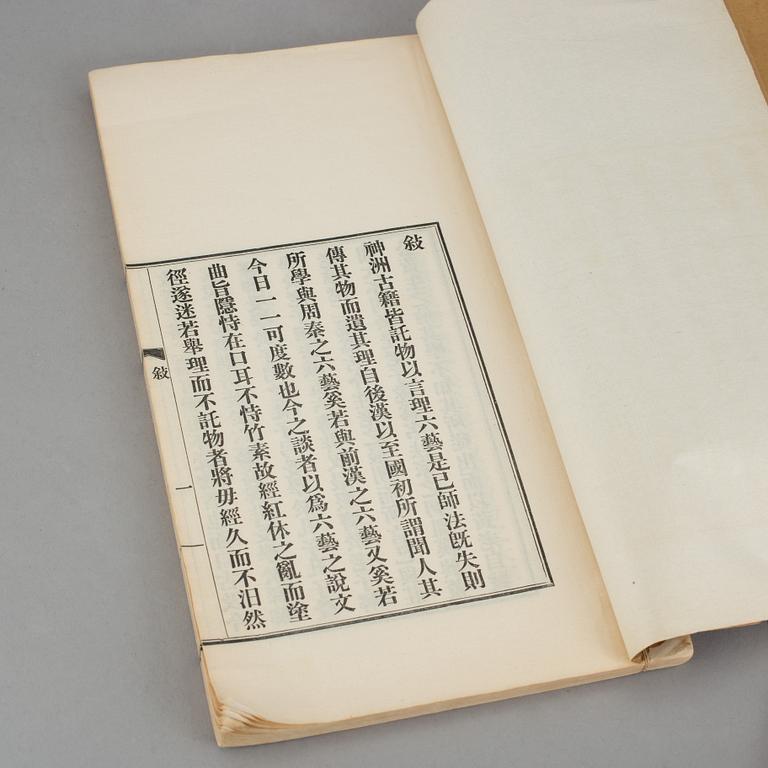 敍
神洲古籍皆託物以言理六藝是已師法旣失則
傳其物而遺其理自後漢以至國初所謂聞人其
所學與周秦之六藝奚若與前漢之六藝又奚若
今日一一可度數也今之談者以爲六藝之說文
曲旨隱恃在口耳不恃竹素故經紅休之亂而塗
徑遂迷若舉理而不託物者將毋經久而不汨然
敍
一